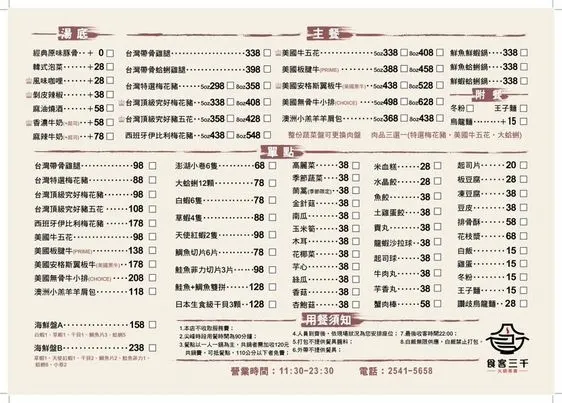 湯底
經典原味豚骨 + 0
韓式泡菜 + 28
風味咖哩 + 28
剝皮辣椒 + 38
麻油燒酒 + 58
香濃牛奶(+起司) + 58
麻辣牛奶(+起司) + 78
主餐
台灣帶骨雞腿 338
台灣帶骨蛤蜊雞腿 398
台灣特選梅花豬 5oz298 8oz358
台灣頂級究好梅花豬 5oz338 8oz408
台灣頂級究好豬五花 5oz358 8oz428
西班牙伊比利梅花豬 5oz438 8oz548
美國牛五花 5oz338 8oz408
美國板腱牛(PRIME) 5oz388 8oz458
美國安格斯翼板牛(美國黑牛) 5oz438 8oz538
美國無骨牛小排(CHOICE) 5oz498 8oz628
澳洲小羔羊羊肩包 5oz368 8oz438
整份蔬菜盤可更換肉盤 肉品三選一(特選梅花豬、美國牛五花、大蛤蜊)
鮮魚鮮蝦鍋 338
鮮魚蛤蜊鍋 338
鮮蝦蛤蜊鍋 338
附餐
冬粉 王子麵
烏龍麵 + 15
單點
台灣帶骨雞腿 98
台灣特選梅花豬 88
台灣頂級究好梅花豬 98
台灣頂級究好豬五花 108
西班牙伊比利梅花豬 178
美國牛五花 98
美國板腱牛(PRIME) 138
美國安格斯翼板牛(美國黑牛) 178
美國無骨牛小排(CHOICE) 208
澳洲小羔羊羊肩包 118
海鮮盤A 158
白蝦1、草蝦1、干貝1、鯛魚片3、蛤蜊5
海鮮盤B 238
草蝦1、天使紅蝦1、干貝2、鯛魚片2、鮭魚菲力1、
蛤蜊6、小卷2
澎湖小卷6隻 68
大蛤蜊12顆 78
白蝦6隻 78
草蝦4隻 88
天使紅蝦2隻 98
鯛魚切片6片 78
鮭魚菲力切片3片 98
鮭魚+鯛魚雙拼 128
日本生食級干貝3顆 128
高麗菜 38
季節蔬菜 38
茼蒿(季節限定) 38
金針菇 38
南瓜 38
玉米筍 38
木耳 38
花椰菜 38
芋心 38
絲瓜 38
香菇 38
杏鮑菇 38
米血糕 28
水晶餃 28
魚餃 38
土雞蛋餃 38
貢丸 38
龍蝦沙拉球 38
起司球 38
牛肉丸 38
芋香丸 38
蟹肉棒 58
起司片 20
板豆腐 28
凍豆腐 28
豆皮 38
排骨酥 58
花枝漿 68
白飯 15
雞蛋 15
冬粉 15
王子麵 15
讚岐烏龍麵 28
用餐須知
1.本店不收取服務費;
2.尖峰時段用餐時間為90分鐘;
3.餐點以一人一鍋為主,共鍋者需加收120元
共鍋費,可抵餐點,110公分以下者免費;
4.人員到齊後,依現場狀況為您安排座位;
5.打包不提供餐具醬料;
6.外帶不提供餐具;
7.最後收客時間22:00;
8.白飯無限供應,白飯禁止打包。
營業時間:11:30-23:30 電話:2541-5658
食客三千